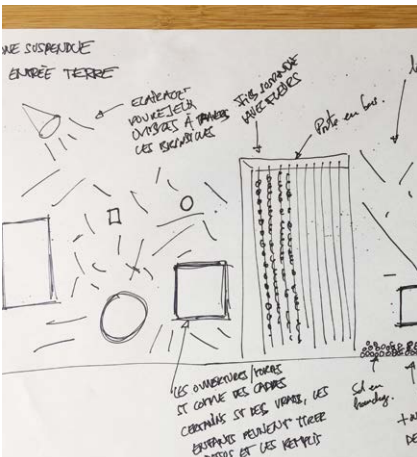 NE SUSPENDUE
ENTRÉE TERRE
ECLAIRAGE
POUR JEUX
OMBRES À TRAVERS
LES
FILS SUSPENDUS
AVEC FLEURS
Porte en bois.
LES OUVERTURES/FORMES
ST COMME DES CADRES
CERTAINS ST DES VRAIS, LES
ENFANTS PEUVENT TIRER
ET LES REMPLIS
Sol en